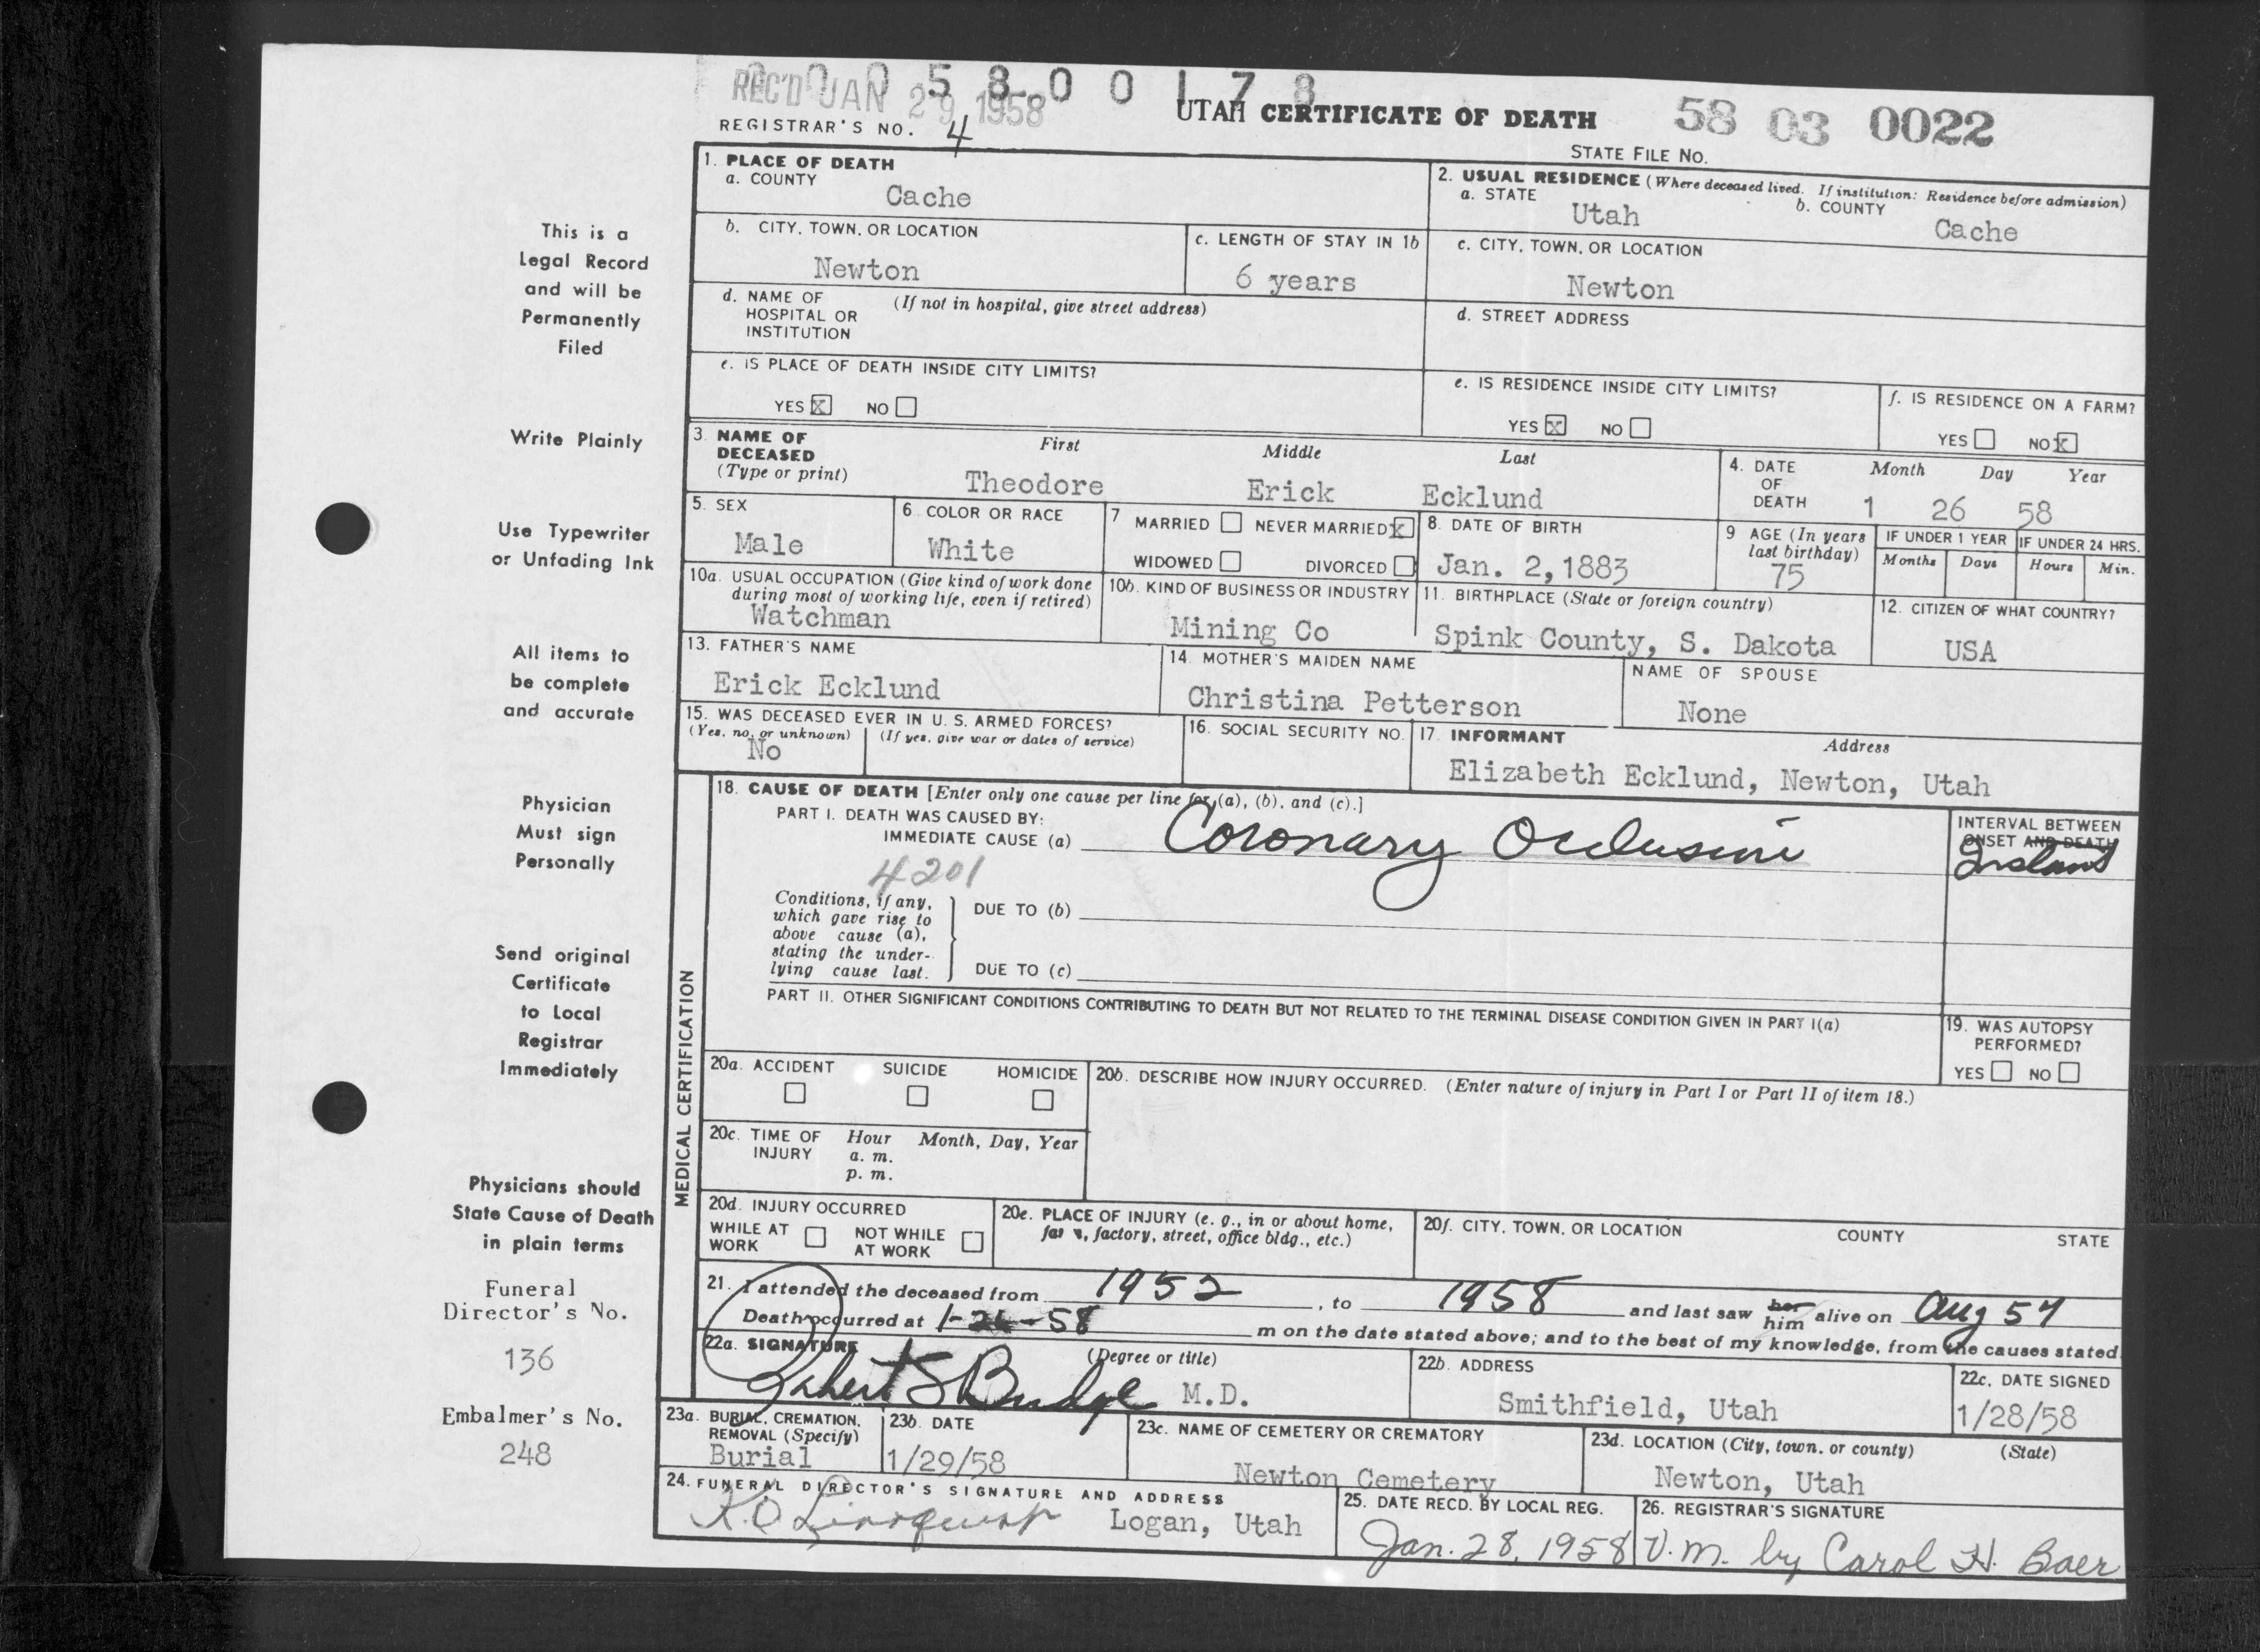 0 0 0 5 8 0 0 1 7 8
REC'D JAN 29 1958
UTAH CERTIFICATE OF DEATH
58 03 0022
REGISTRAR'S NO. 4
STATE FILE NO.
This is a
Legal Record
and will be
Permanently
Filed
Write Plainly
Use Typewriter
or Unfading Ink
All items to
be complete
and accurate
Physician
Must sign
Personally
Send original
Certificate
to Local
Registrar
Immediately
Physicians should
State Cause of Death
in plain terms
Funeral
Director's No.
136
Embalmer's No.
248
1. PLACE OF DEATH
a. COUNTY
Cache
2. USUAL RESIDENCE (Where deceased lived. If institution: Residence before admission)
a. STATE
Utah
b. COUNTY
Cache
b. CITY, TOWN, OR LOCATION
Newton
c. LENGTH OF STAY IN 1b
6 years
c. CITY, TOWN, OR LOCATION
Newton
d. NAME OF (If not in hospital, give street address)
HOSPITAL OR
INSTITUTION
d. STREET ADDRESS
e. IS PLACE OF DEATH INSIDE CITY LIMITS?
YES X NO
e. IS RESIDENCE INSIDE CITY LIMITS?
YES X NO
f. IS RESIDENCE ON A FARM?
YES NO X
3. NAME OF
DECEASED
(Type or print)
First Middle Last
Theodore Erick Ecklund
4. DATE
OF
DEATH
Month Day Year
1 26 58
5. SEX
Male
6. COLOR OR RACE
White
7 MARRIED NEVER MARRIED X
WIDOWED DIVORCED
8. DATE OF BIRTH
Jan. 2,1883
9 AGE (In years
last birthday)
75
IF UNDER 1 YEAR
Months Days
IF UNDER 24 HRS.
Hours Min.
10a. USUAL OCCUPATION (Give kind of work done
during most of working life, even if retired)
Watchman
10b. KIND OF BUSINESS OR INDUSTRY
Mining Co
11. BIRTHPLACE (State or foreign country)
Spink County, S. Dakota
12. CITIZEN OF WHAT COUNTRY?
USA
13. FATHER'S NAME
Erick Ecklund
14. MOTHER'S MAIDEN NAME
Christina Petterson
NAME OF SPOUSE
None
15. WAS DECEASED EVER IN U. S. ARMED FORCES?
(Yes, no, or unknown) (If yes, give war or dates of service)
No
16. SOCIAL SECURITY NO.
17. INFORMANT Address
Elizabeth Ecklund, Newton, Utah
MEDICAL CERTIFICATION
18. CAUSE OF DEATH [Enter only one cause per line for (a), (b), and (c).]
PART I. DEATH WAS CAUSED BY:
IMMEDIATE CAUSE (a) Coronary Occlusion
4201
INTERVAL BETWEEN
ONSET AND DEATH
Instant
Conditions, if any,
which gave rise to
above cause (a),
stating the under-
lying cause last.
DUE TO (b)
DUE TO (c)
PART II. OTHER SIGNIFICANT CONDITIONS CONTRIBUTING TO DEATH BUT NOT RELATED TO THE TERMINAL DISEASE CONDITION GIVEN IN PART I(a)
19. WAS AUTOPSY
PERFORMED?
YES NO
20a. ACCIDENT SUICIDE HOMICIDE
20b. DESCRIBE HOW INJURY OCCURRED. (Enter nature of injury in Part I or Part II of item 18.)
20c. TIME OF
INJURY
Hour Month, Day, Year
a. m.
p. m.
20d. INJURY OCCURRED
WHILE AT
WORK
NOT WHILE
AT WORK
20e. PLACE OF INJURY (e. g., in or about home,
farm, factory, street, office bldg., etc.)
20f. CITY, TOWN, OR LOCATION COUNTY STATE
21. I attended the deceased from 1952, to 1958 and last saw her him alive on Aug 57
Death occurred at 1-26-58 m on the date stated above; and to the best of my knowledge, from the causes stated.
22a. SIGNATURE (Degree or title)
Robert S Budge M.D.
22b. ADDRESS
Smithfield, Utah
22c. DATE SIGNED
1/28/58
23a. BURIAL, CREMATION,
REMOVAL (Specify)
Burial
23b. DATE
1/29/58
23c. NAME OF CEMETERY OR CREMATORY
Newton Cemetery
23d. LOCATION (City, town, or county) (State)
Newton, Utah
24. FUNERAL DIRECTOR'S SIGNATURE AND ADDRESS
K.O. Lindquist Logan, Utah
25. DATE RECD. BY LOCAL REG.
Jan. 28, 1958
26. REGISTRAR'S SIGNATURE
V.M. by Carol H. Baer